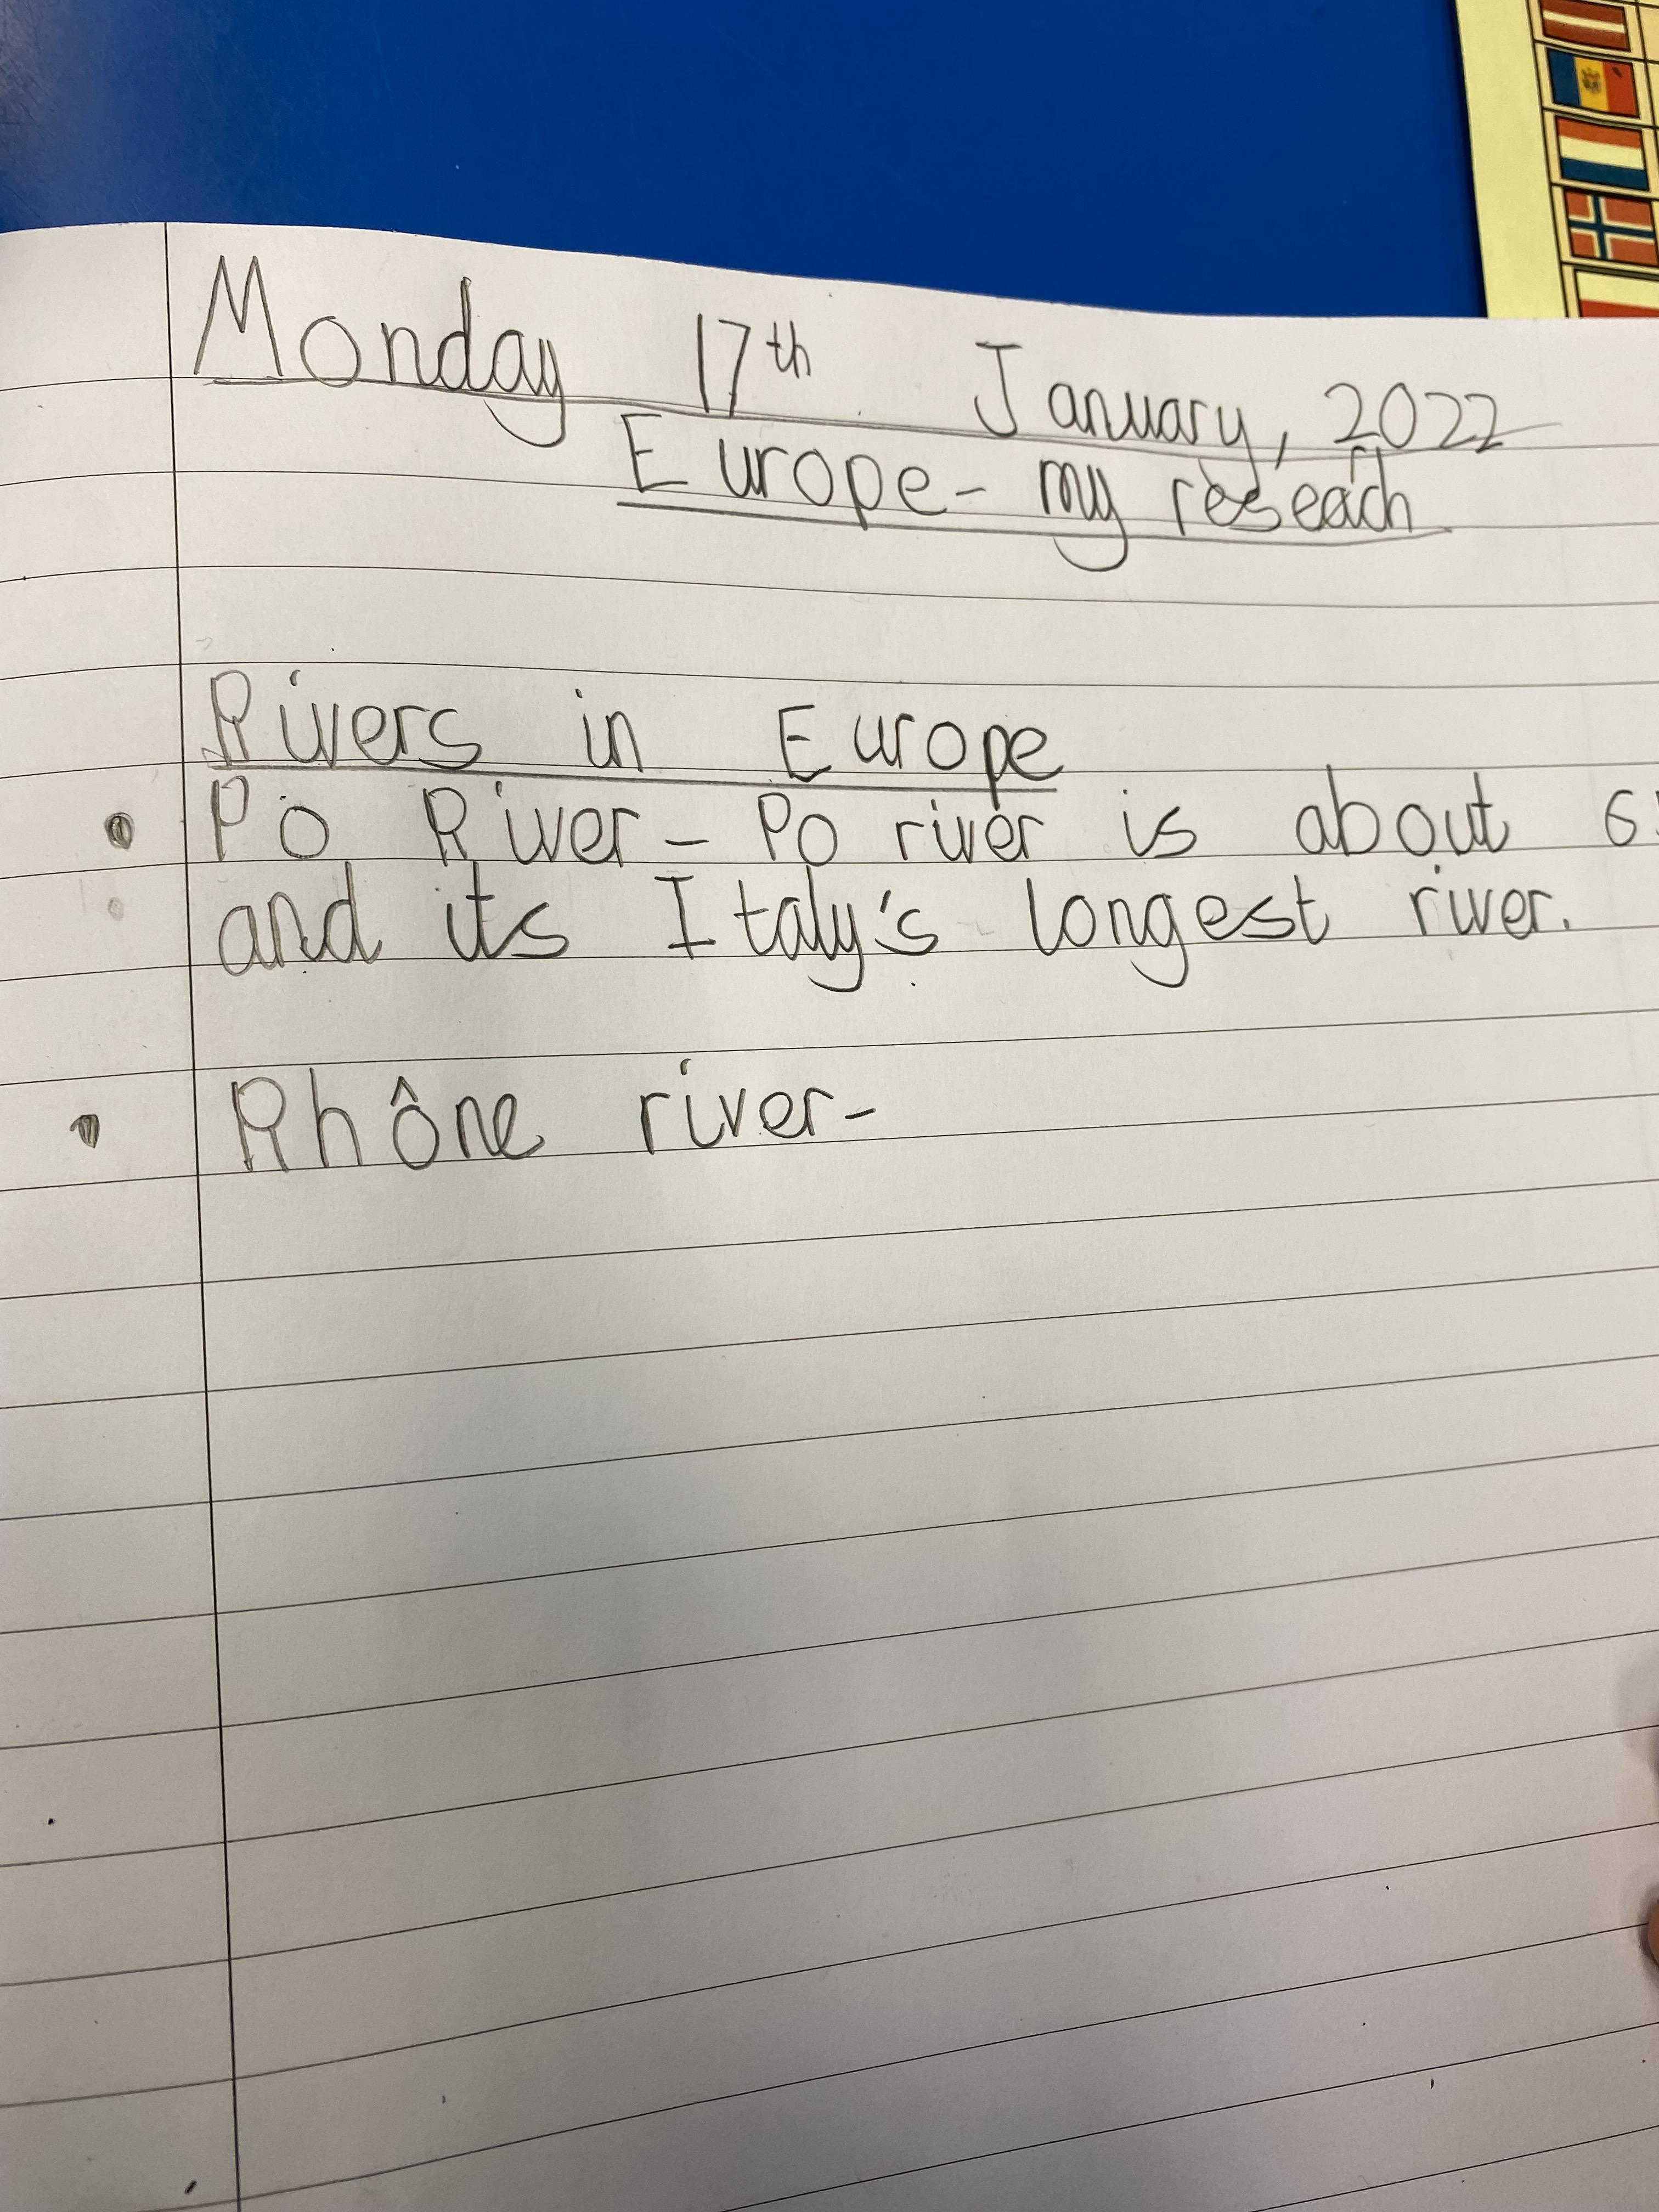 Monday 17th January, 2022
Europe - my reseach
Rivers in Europe
• Po River - Po river is about 6
and its Italy's longest river.
• Rhône river-